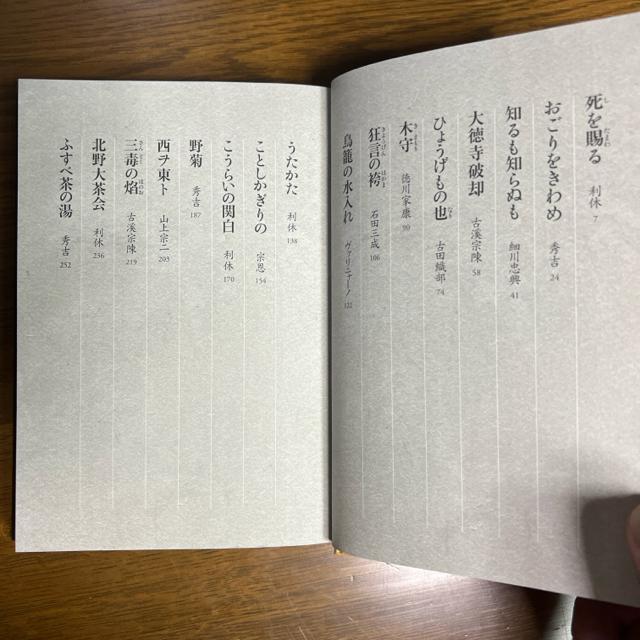 死を賜る 利休 7
おごりをきわめ 秀吉 24
知るも知らぬも 細川忠興 41
大徳寺破却 古溪宗陳 58
ひょうげもの也 古田織部 74
木守 徳川家康 90
狂言の袴 石田三成 106
鳥籠の水入れ ヴァリニャーノ 122
うたかた 利休 138
ことしかぎりの 宗恩 154
こうらいの関白 利休 170
野菊 秀吉 187
西ヲ東ト 山上宗二 203
三毒の焰 古溪宗陳 219
北野大茶会 利休 236
ふすべ茶の湯 秀吉 252